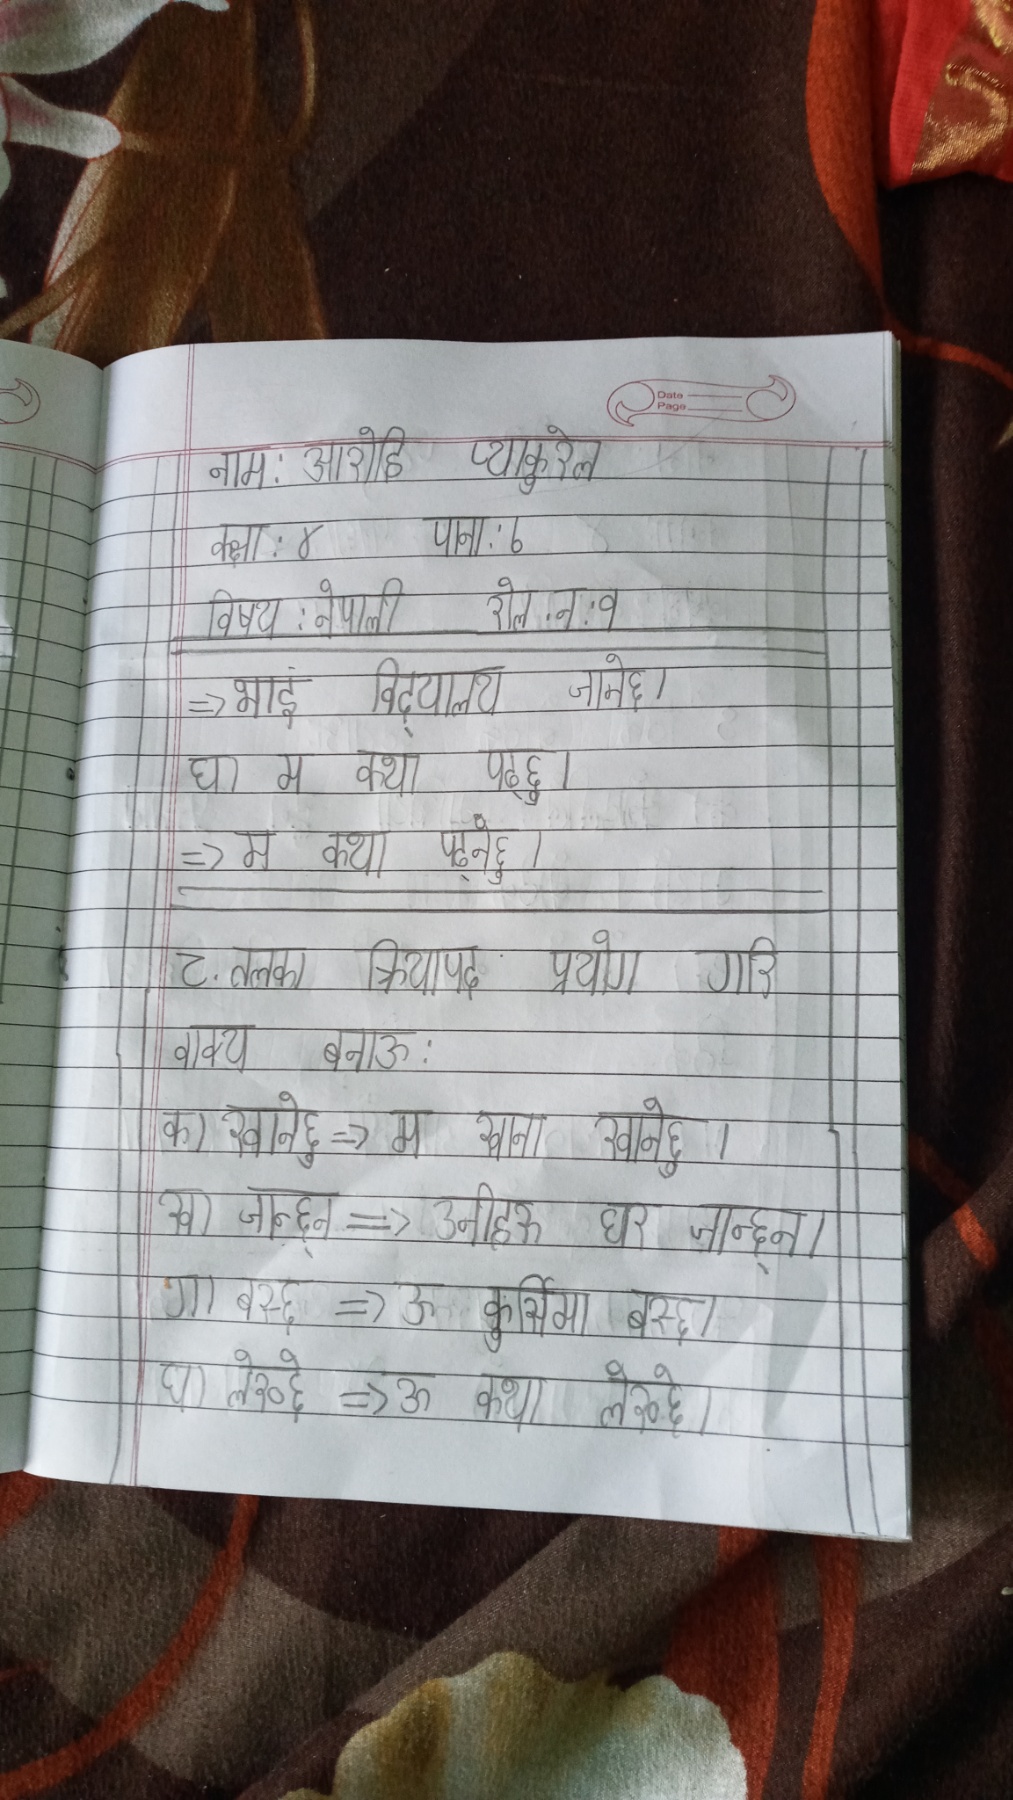 Date
Page
नाम: आरोहि प्याकुरेल
कक्षा: ४ पाना: ६
विषय : नेपाली रोल : न : १
=> भाइ विद्यालय जानेछ।
घ। म कथा पढ्छु।
=> म कथा पढ्नेछु।
२. तलका क्रियापद प्रयोग गरि
वाक्य बनाऊ:
क। खानेछु => म खाना खानेछु।
ख। जान्छन् => उनीहरू घर जान्छन्।
ग। बस्छ => ऊ कुर्सिमा बस्छ।
घ। लेख्छे => ऊ कथा लेख्छे।